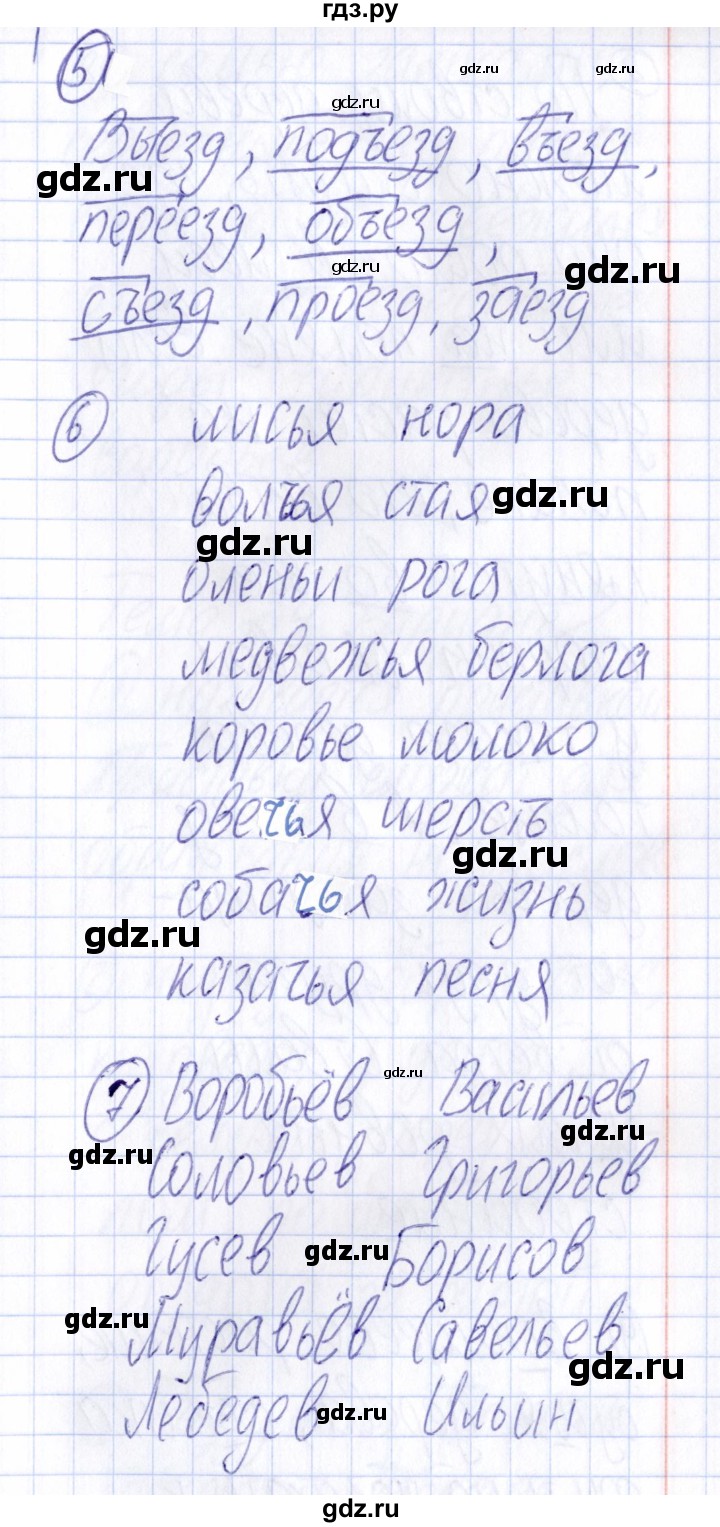 гдз.ру
5
gdz.ru gdz.ru
gdz.ru
Выезд, подъезд, въезд,
gdz.ru
переезд, объезд,
gdz.ru
gdz.ru
съезд, проезд, заезд
6 лисья нора
волчья стая
gdz.ru
gdz.ru
оленьи рога
медвежья берлога
коровье молоко
овечья шерсть
gdz.ru
собачья жизнь
gdz.ru
казачья песня
gdz.ru
7 Воробьёв Васильев
gdz.ru
gdz.ru
Соловьев Григорьев
Гусев gdz.ru Борисов
gdz.ru
Муравьёв Савельев
gdz.ru
Лебедев gdz.ru Ильин
gdz.ru